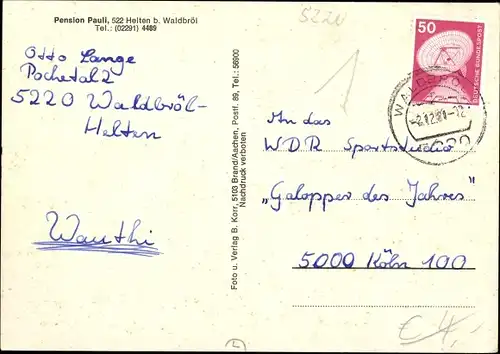 Pension Pauli, 522 Helten b. Waldbröl
Tel.: (02291) 4489
Otto Lange
Pochetal 2
5220 Waldbröl-
Helten
Wauthi
Foto u. Verlag B. Korr, 5103 Brand/Aachen, Postf. 89, Tel.: 56600
Nachdruck verboten
522
50
DEUTSCHE BUNDESPOST
-2.12.81-12
An das
WDR Sportstudio
„Galopper des Jahres"
5000 Köln 100
€ 4,-